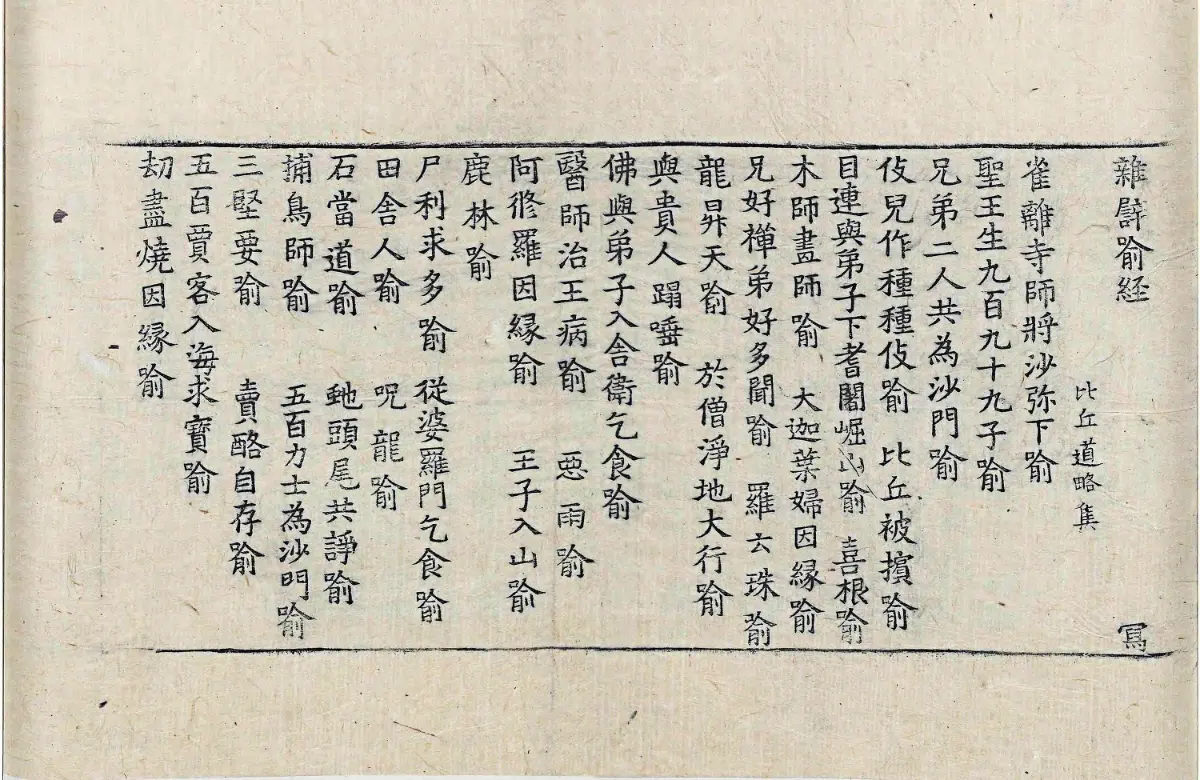 雜譬喻経 寫
比丘道略集
雀離寺師將沙弥下喻
聖王生九百九十九子喻
兄弟二人共為沙門喻
伎兒作種種伎喻 比丘被擯喻
目連與弟子下耆闍崛山喻 喜根喻
木師畫師喻 大迦葉婦因縁喻
兄好禪弟好多聞喻 羅云珠喻
龍昇天喻 於僧淨地大行喻
與貴人蹋唾喻
佛與弟子入舎衛乞食喻
醫師治王病喻 惡雨喻
阿修羅因縁喻 王子入山喻
鹿林喻
尸利求多喻 從婆羅門乞食喻
田舎人喻 呪龍喻
石當道喻 虵頭尾共諍喻
捕鳥師喻 五百力士為沙門喻
三堅要喻 賣酪自存喻
五百賈客入海求寶喻
劫盡燒因縁喻